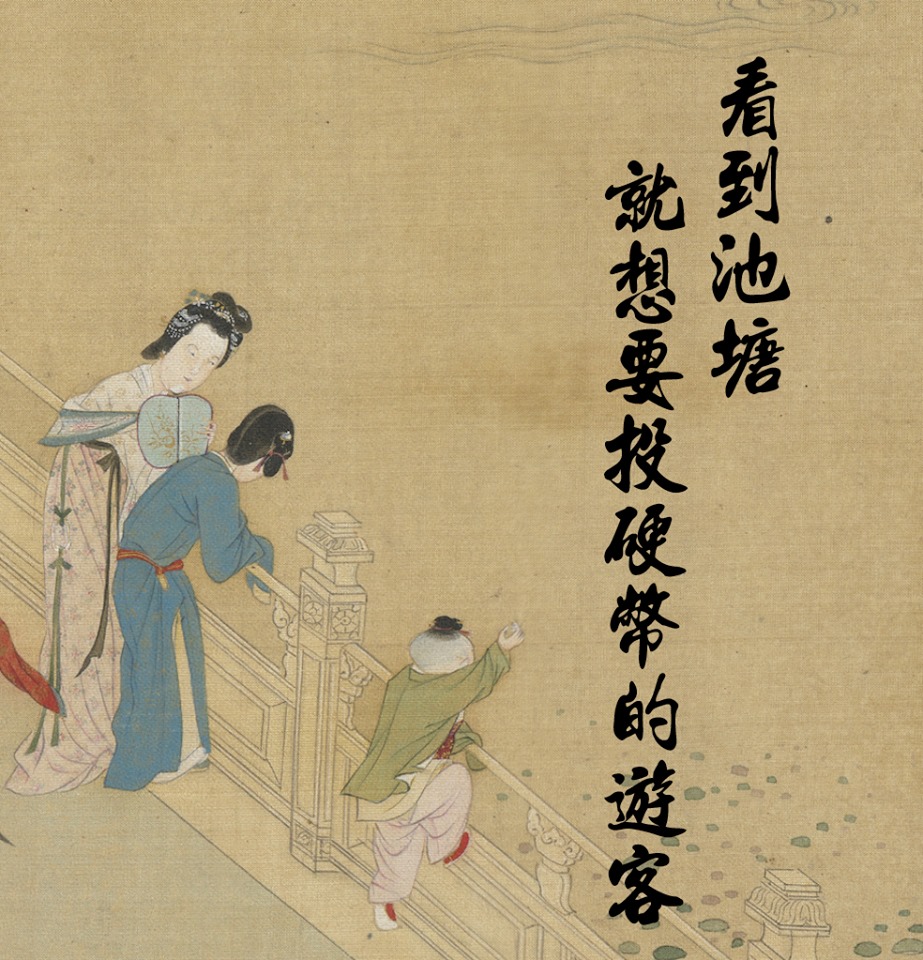 看到池塘
就想要投硬幣的遊客